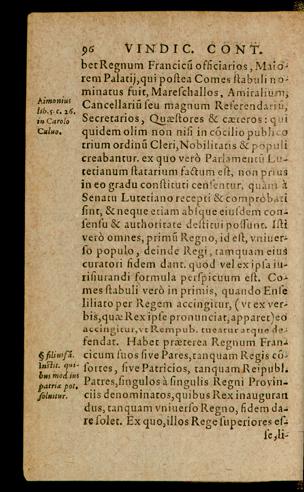 96 VINDIC. CONT.
bet Regnum Francicũ officiarios, Maio-
rem Palatij, qui postea Comes stabuli no-
minatus fuit, Mareschallos, Amiralium,
Aimonius
lib. 5. c. 26.
in Carolo
Caluo.
Cancellariũ seu magnum Referendariũ,
Secretarios, Quæstores & cæteros: qui
quidem olim non nisi in cõcilio publico
trium ordinũ Cleri, Nobilitatis & populi
creabantur. ex quo verò Parlamentũ Lu-
tetianum statarium factum est, non prius
in eo gradu constituti censentur, quàm à
Senatu Lutetiano recepti & comprobati
sint, & neque etiam absque eiusdem con-
sensu & authoritate destitui possunt. Isti
verò omnes, primũ Regno, id est, vniuer-
so populo, deinde Regi, tamquam eius
curatori fidem dant. quod vel ex ipsa iu-
risiurandi formula perspicuum est. Co-
mes stabuli verò in primis, quando Ense
liliato per Regem accingitur, (vt ex ver-
bis, quæ Rex ipse pronunciat, apparet) eo
accingitur, vt Rempub. tueatur atque de-
fendat. Haber præterea Regnum Fran-
cicum suos siue Pares, tanquam Regis cõ-
sortes, siue Patricios, tanquam Reipubl.
Patres, singulos à singulis Regni Prouin-
ciis denominatos, quibus Rex inauguran
dus, tanquam vniuerso Regno, fidem da-
re solet. Ex quo, illos Rege superiores es-
se, li-
§ filiusfã.
Instit. qui-
bus mod. ius
patriæ pot.
soluitur.